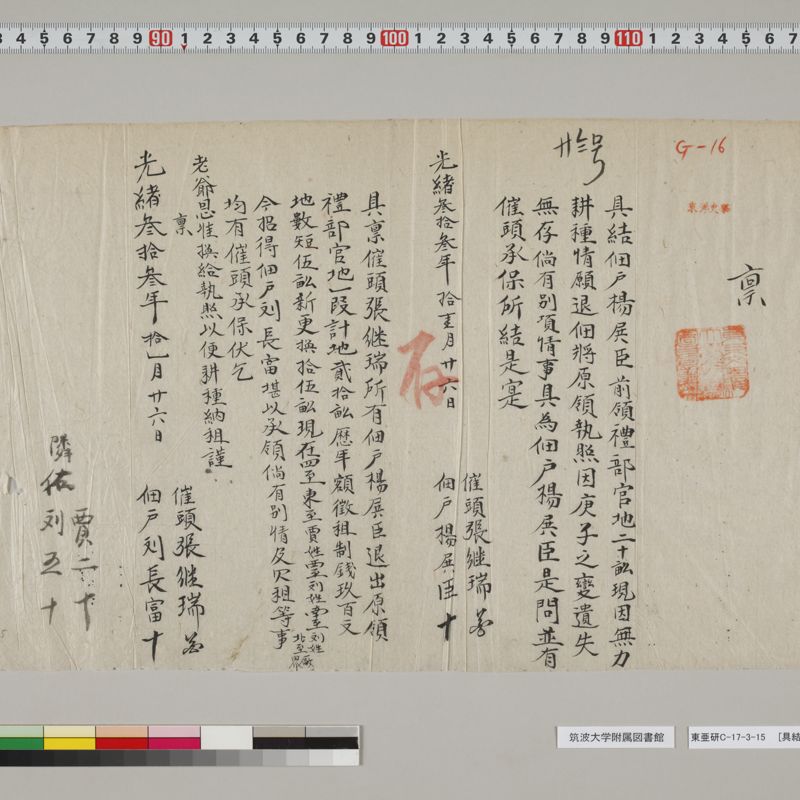 3 4 5 6 7 8 9 90 1 2 3 4 5 6 7 8 9 100 1 2 3 4 5 6 7 8 9 110 1 2 3 4 5 6 7
G-16
稟
具結佃戶楊展臣前領禮部官地二十畝現因無力
耕種情願退佃將原領執照因庚子之變遺失
無存倘有別項情事具為佃戶楊展臣是問並有
催頭承保所結是寔
光緒叁拾叁年拾壹月廿六日
催頭張継瑞
佃戶楊展臣十
存
具稟催頭張継瑞所有佃戶楊展臣退出原領
禮部官地一段計地貳拾畝歷年額徵租制錢玖百文
地數短伍畝新更換拾伍畝現在四至東至賈姓西至刘姓南至刘姓
北至
今招得佃戶刘長富堪以承領倘有別情及欠租等事
均有催頭承保伏乞
老爺恩准換給執照以便耕種納租謹
稟
光緒叁拾叁年拾一月廿六日
催頭張継瑞
佃戶刘長富十
賈二十
隣佑刘五十
筑波大学附属図書館
東亜研C-17-3-15 [具結